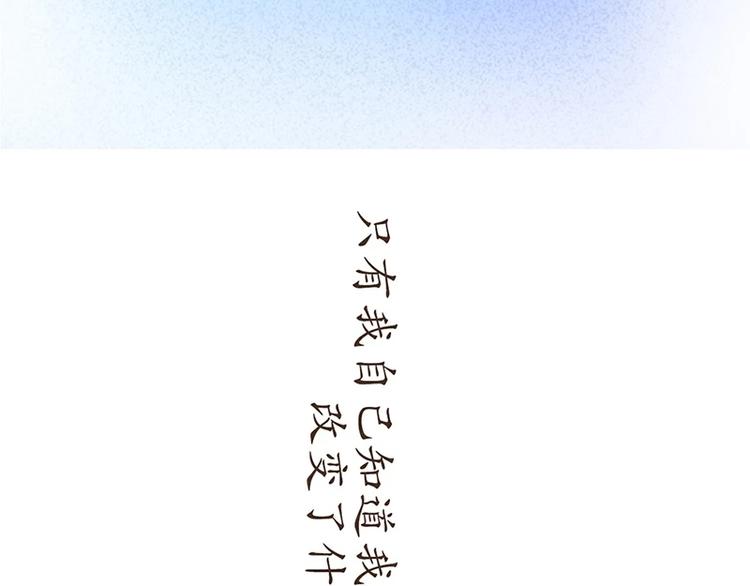 只有我自己知道我
改变了什